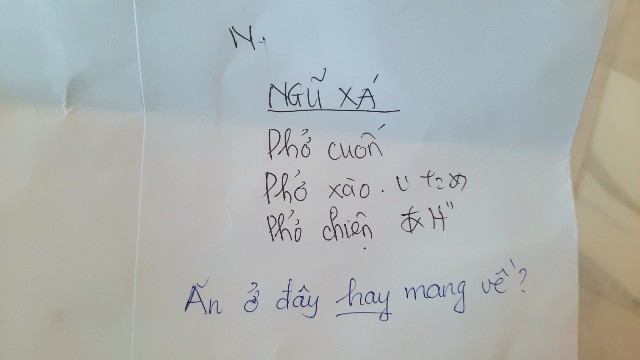 N.
NGŨ XÁ
Phở cuốn
Phở xào . いため
Phở chiện あげ
Ăn ở đây hay mang về?